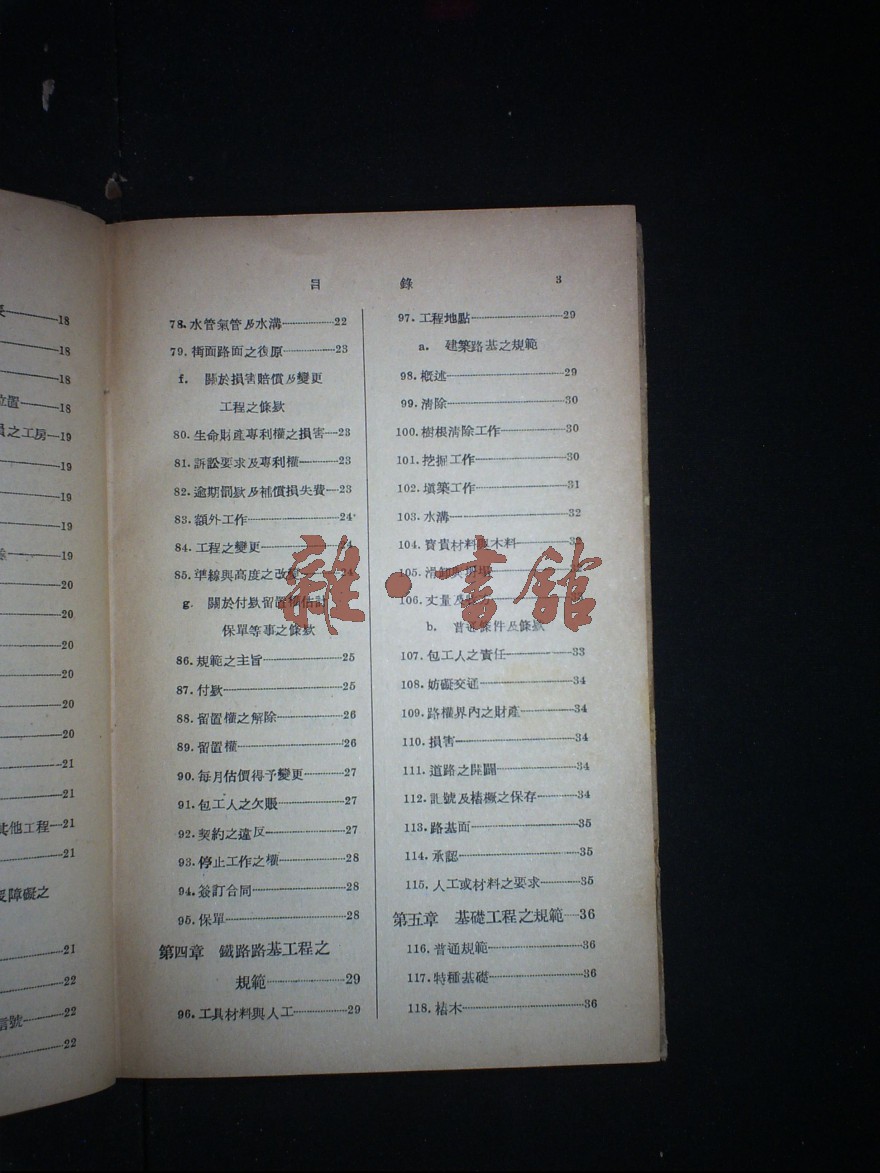 18
18
18
位置 18
員之工房 19
19
19
19
19
20
20
20
20
20
20
21
21
其他工程 21
21
障礙之
21
22
信號 22
22
目錄 3
78. 水管氣管及水溝 22
79. 街面路面之復原 23
f. 關於損害賠償及變更
工程之條欵
80. 生命財產專利權之損害 23
81. 訴訟要求及專利權 23
82. 逾期罰欵及補償損失費 23
83. 額外工作 24
84. 工程之變更 24
85. 準線與高度之改 24
g. 關於付欵留置權估計
保單等事之條欵
86. 規範之主旨 25
87. 付欵 25
88. 留置權之解除 26
89. 留置權 26
90. 每月估價得予變更 27
91. 包工人之欠賬 27
92. 契約之違反 27
93. 停止工作之權 28
94. 簽訂合同 28
95. 保單 28
第四章 鐵路路基工程之
規範 29
96. 工具材料與人工 29
97. 工程地點 29
a. 建築路基之規範
98. 概述 29
99. 清除 30
100. 樹根清除工作 30
101. 挖掘工作 30
102. 塡築工作 31
103. 水溝 32
104. 寶貴材料與木料
105. 滑卸與坍塌
106. 丈量及
b. 普通條件及條欵
107. 包工人之責任 33
108. 妨礙交通 34
109. 路權界內之財產 34
110. 損害 34
111. 道路之開闢 34
112. 記號及樁橛之保存 34
113. 路基面 35
114. 承認 35
115. 人工或材料之要求 35
第五章 基礎工程之規範 36
116. 普通規範 36
117. 特種基礎 36
118. 樁木 36
雜·書館